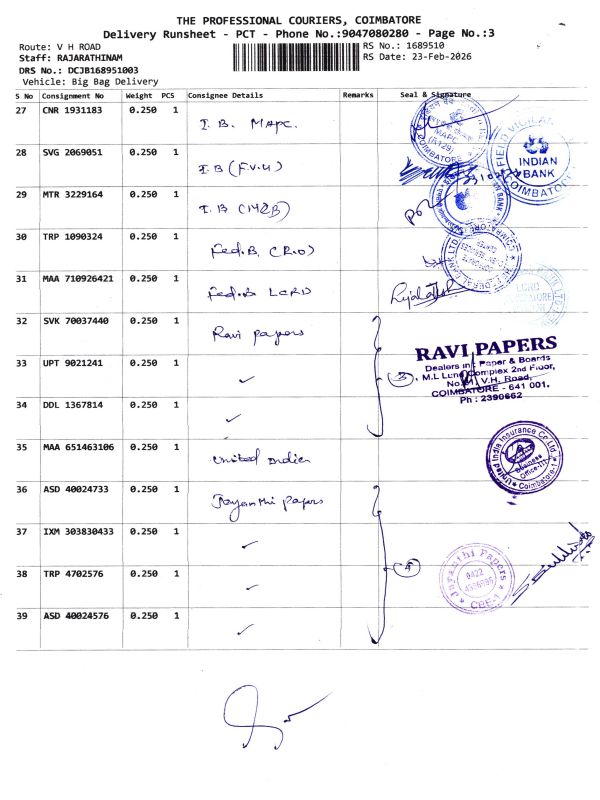 THE PROFESSIONAL COURIERS, COIMBATORE
Delivery Runsheet - PCT - Phone No.:9047080280 - Page No.:3
Route: V H ROAD
RS No.: 1689510
Staff: RAJARATHINAM
RS Date: 23-Feb-2026
DRS No.: DCJB168951003
Vehicle: Big Bag Delivery
S No Consignment No Weight PCS Consignee Details Remarks Seal & Signature
27 CNR 1931183 0.250 1 I.B. MAPC.
28 SVG 2069051 0.250 1 I.B (F.V.U)
29 MTR 3229164 0.250 1 I.B (MZB)
30 TRP 1090324 0.250 1 Fed.B. (R.O)
31 MAA 710926421 0.250 1 Fed.B LCRD
32 SVK 70037440 0.250 1 Ravi papers
33 UPT 9021241 0.250 1 ✓
34 DDL 1367814 0.250 1 ✓
35 MAA 651463106 0.250 1 United India
36 ASD 40024733 0.250 1 Jayanthi papers
37 IXM 303830433 0.250 1 ✓
38 TRP 4702576 0.250 1 ✓
39 ASD 40024576 0.250 1 ✓
3
4
MAPC
COIMBATORE
FIELD VIGILANCE
INDIAN
BANK
COIMBATORE
THE FEDERAL BANK LTD
LCRD
RAVI PAPERS
Dealers in : Paper & Boards
M.L Complex 2nd Floor,
V.H. Road,
COIMBATORE - 641 001.
Ph : 2390662
United India Insurance Co. Ltd.
Business
Office-III
Coimbatore-1
Jayanthi Papers
0422
CBE-1